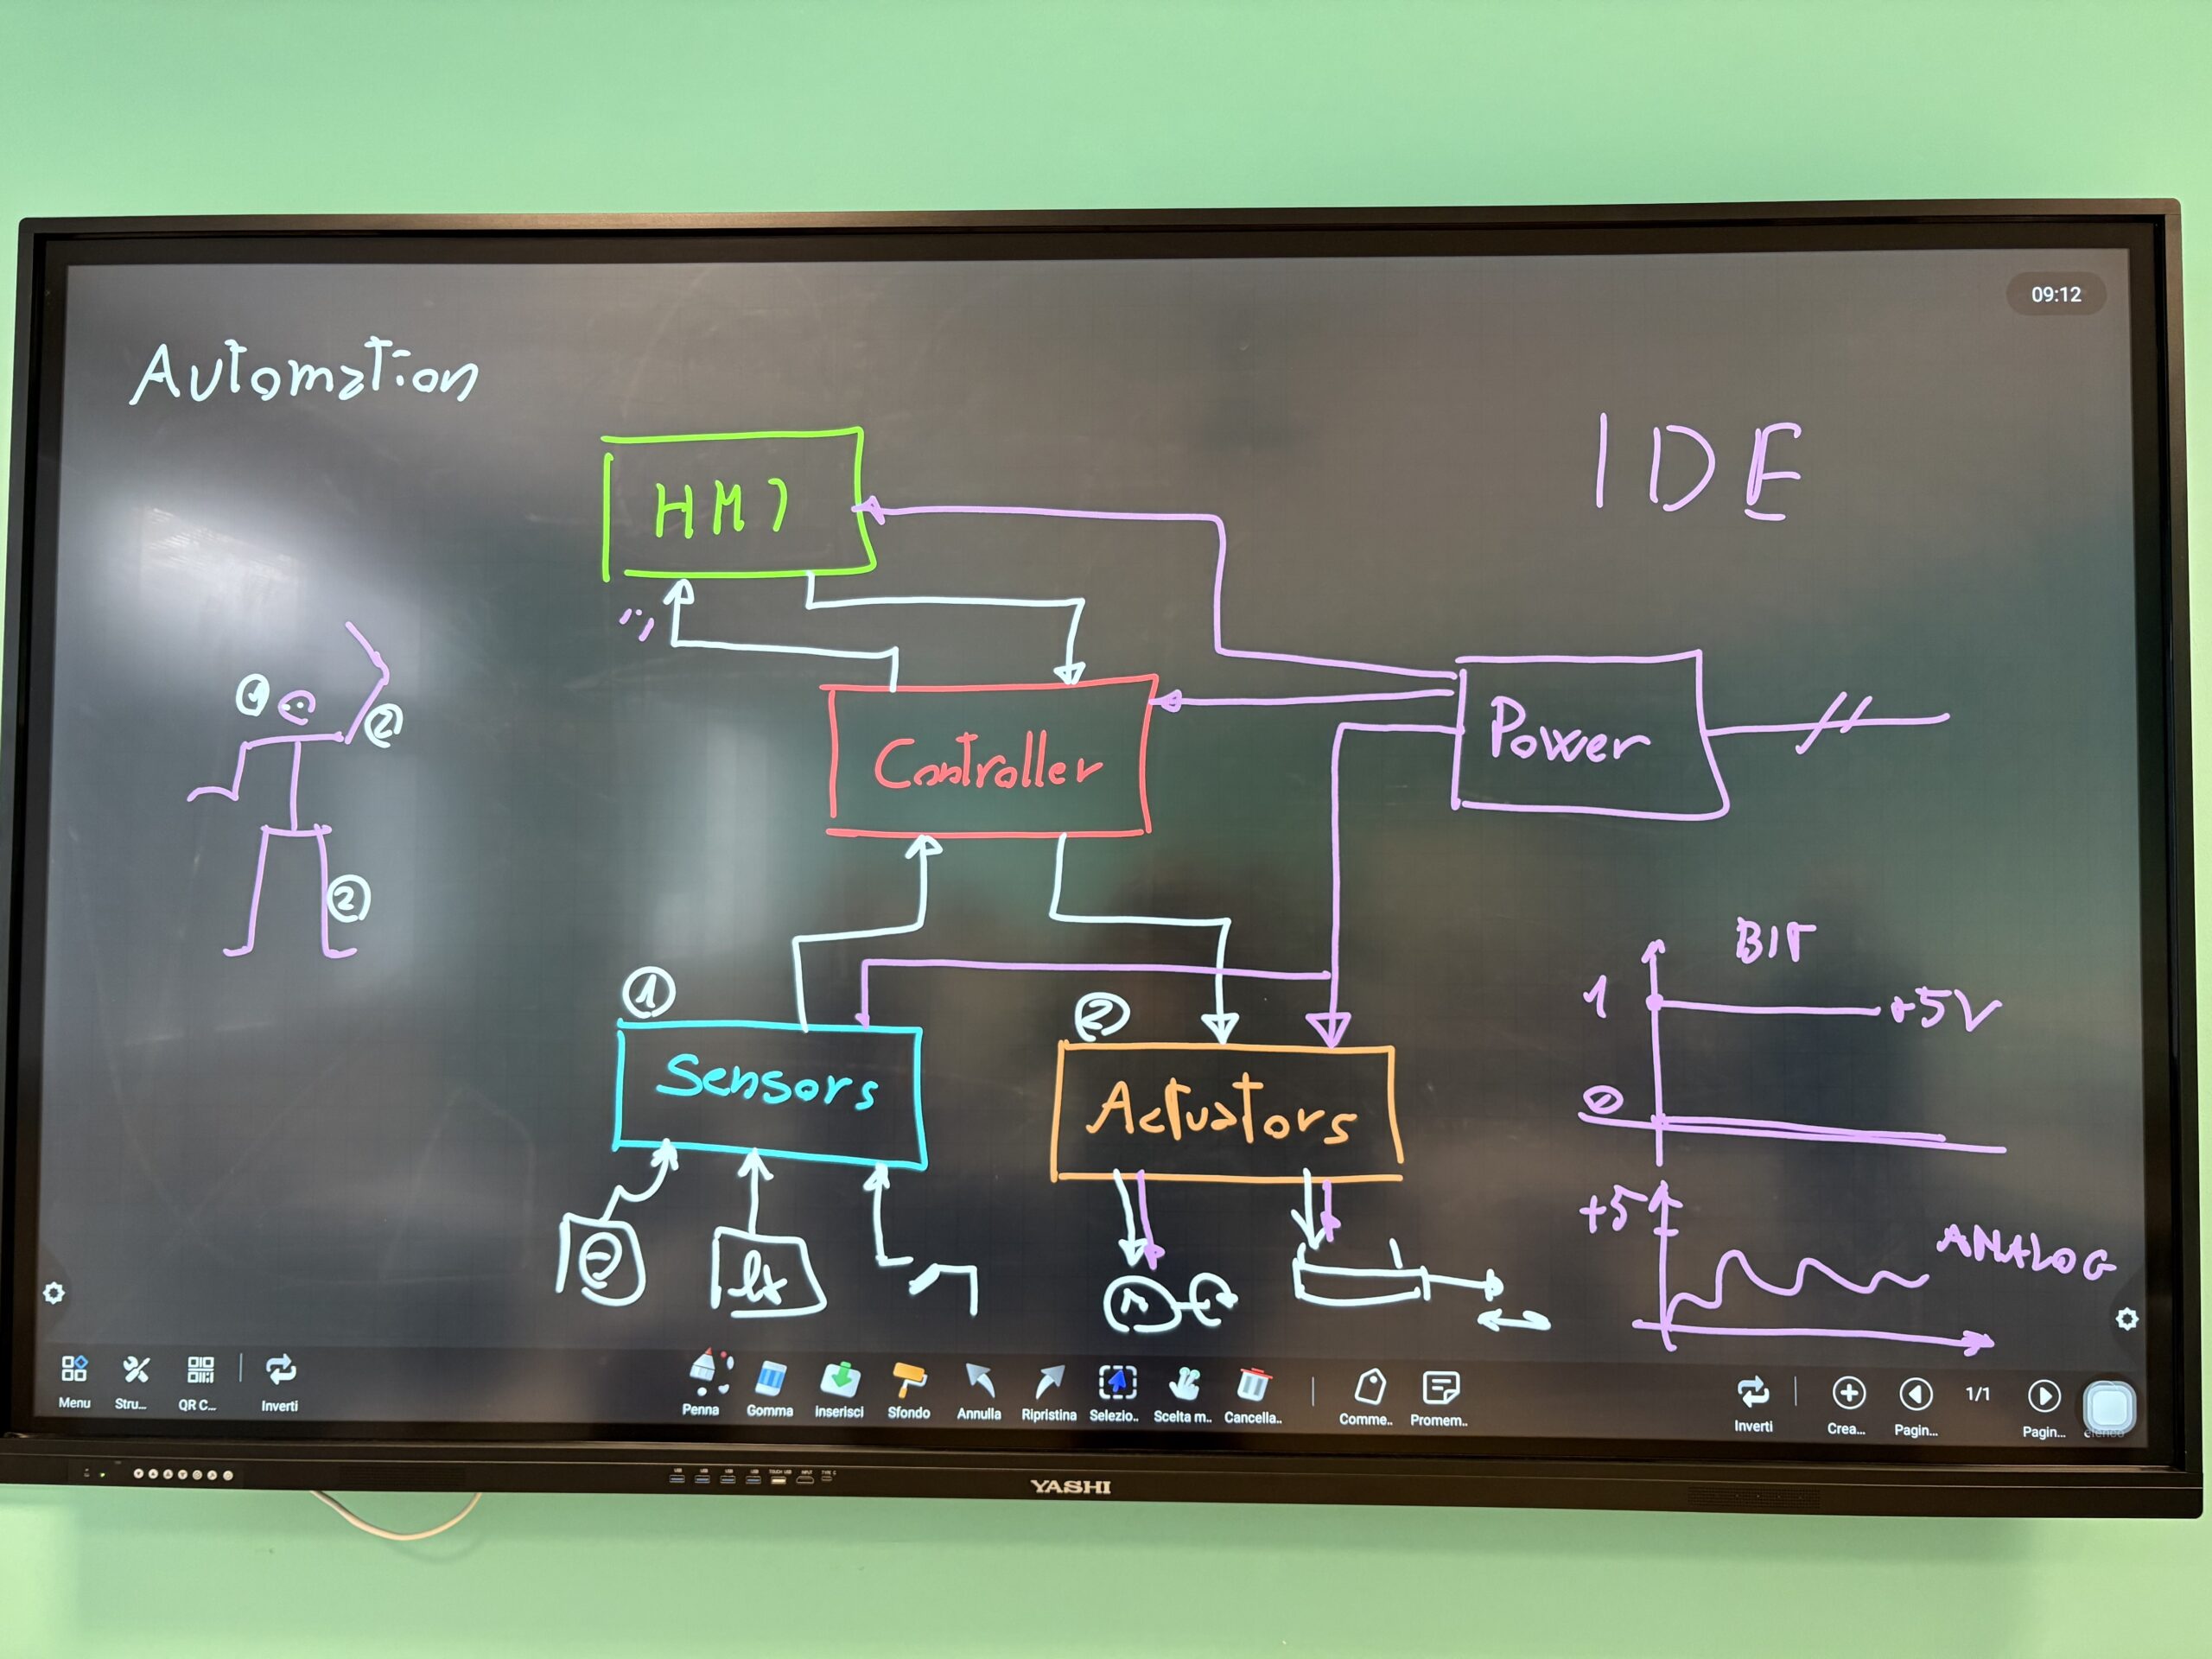 09:12
Automation
IDE
HMI
Controller
Power
1
2
2
1
Sensors
2
Actuators
lx
M
BIT
1
+5V
0
+5
ANALOG
Menu
Stru...
QR C...
Inverti
Penna
Gomma
Inserisci
Sfondo
Annulla
Ripristina
Selezio..
Scelta m..
Cancella..
Comme..
Promem..
Inverti
Crea...
Pagin...
1/1
Pagin...
YASHI